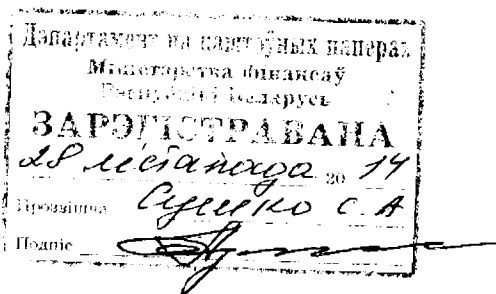 Дэпартамент па каштоўных паперах
Міністэрства фінансаў
Рэспублікі Беларусь
ЗАРЭГІСТРАВАНА
28 лістапада 20 14
Прозвішча Сушко С. А
Подпіс